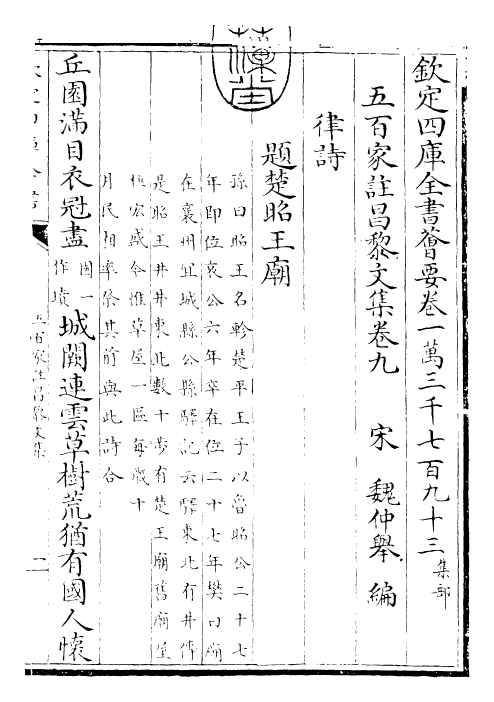 欽定四庫全書薈要卷一萬三千七百九十三集部
五百家註昌黎文集卷九
宋 魏仲舉 編
律詩
題楚昭王廟
孫曰昭王名軫楚平王子以魯昭公二十七
年即位哀公六年卒在位二十七年樊曰廟
在襄州宜城縣公縣驛記云驛東北有井傳
是昭王井井東北數十步有楚王廟舊廟屋
極宏盛今惟草屋一區每歲十
月民相率祭其前與此詩合
丘園滿目衣冠盡園一作墳城闕連雲草樹荒猶有國人懷
五百家註昌黎文集